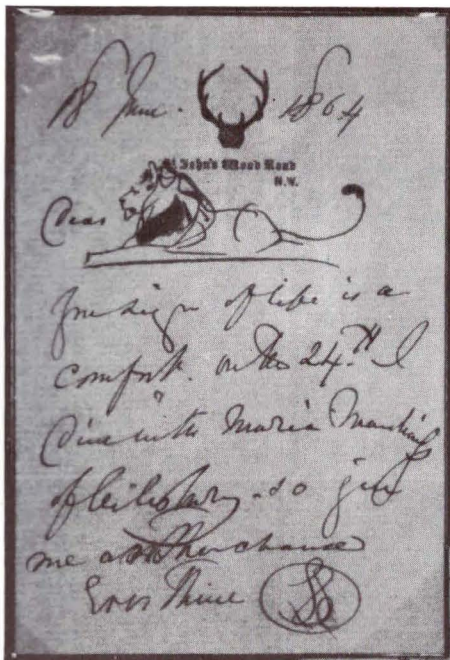 18 June. 1864
St John's Wood Road
N.W.
Dear
sign of life is a
comfort. on the 24th I
Dine with Maria
of so give
me another chance
Ever Thine